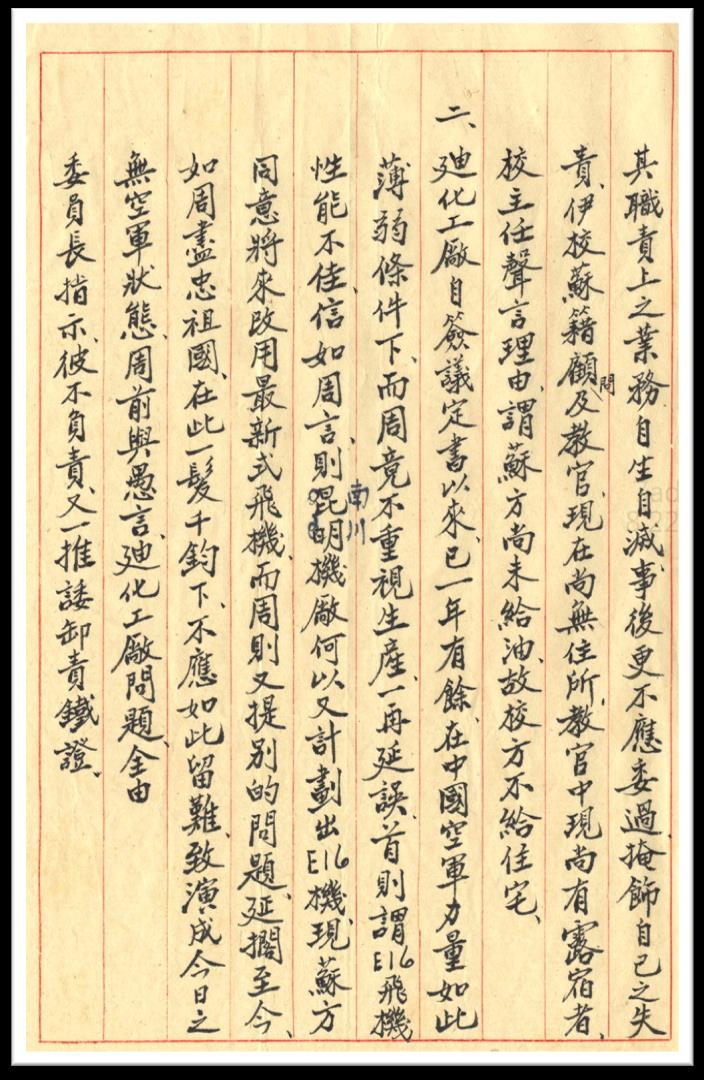 其職責上之業務自生自滅、事後更不應委過掩飾自己之失
責、伊校蘇籍顧問及教官、現在尚無住所、教官中現尚有露宿者、
校主任聲言理由、謂蘇方尚未給油、故校方不給住宅、
二、廸化工廠自簽議定書以來、已一年有餘、在中國空軍力量如此
薄弱條件下、而周竟不重視生產、一再延誤、首則謂E16飛機
性能不佳、信如周言、則昆明南川機廠何以又計劃出E16機、現蘇方
同意將來改用最新式飛機、而周則又提別的問題、延擱至今、
如周盡忠祖國、在此一髮千鈞下、不應如此留難、致演成今日之
無空軍狀態、周前與愚言、廸化工廠問題、全由
委員長指示、彼不負責、又一推諉卸責鐵證、